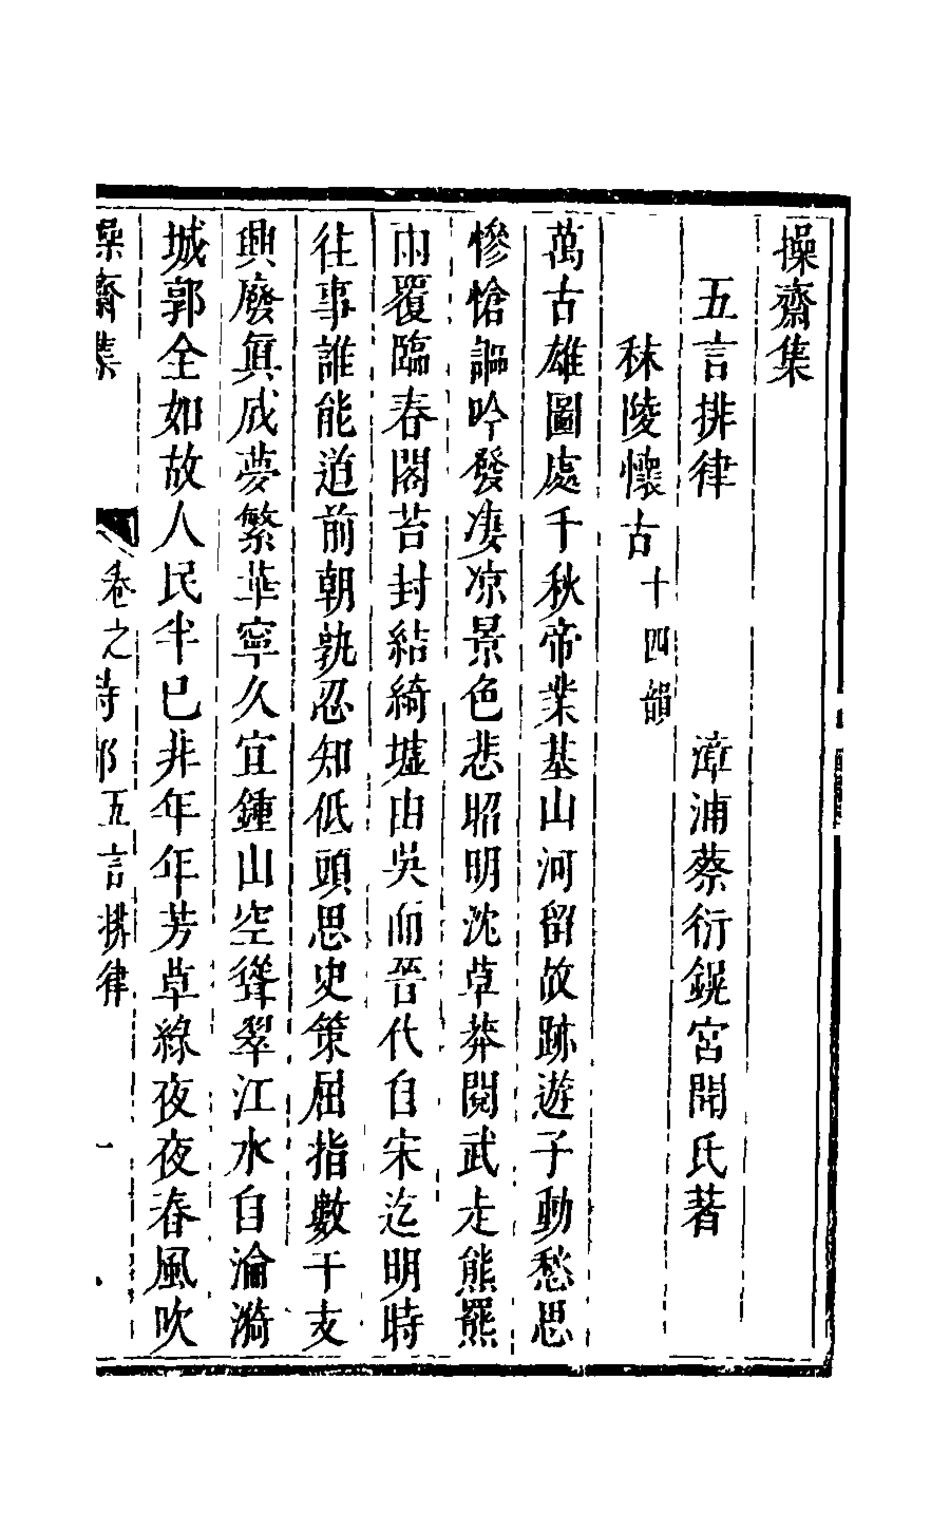 操齋集
五言排律
漳浦蔡衍鎤宮聞氏著
秣陵懷古十四韻
萬古雄圖處千秋帝業基山河留故跡遊子動愁思
慘愴謳吟發凄凉景色悲昭明沈草莽閱武走熊羆
雨覆臨春閣苔封結綺墟由吳而晉代自宋迄明時
往事誰能道前朝孰忍知低頭思史策屈指數干支
興廢眞成夢繁華寧久宜鍾山空聳翠江水自淪漪
城郭全如故人民半已非年年芳草綠夜夜春風吹
操齋集
卷之詩部五言排律
一